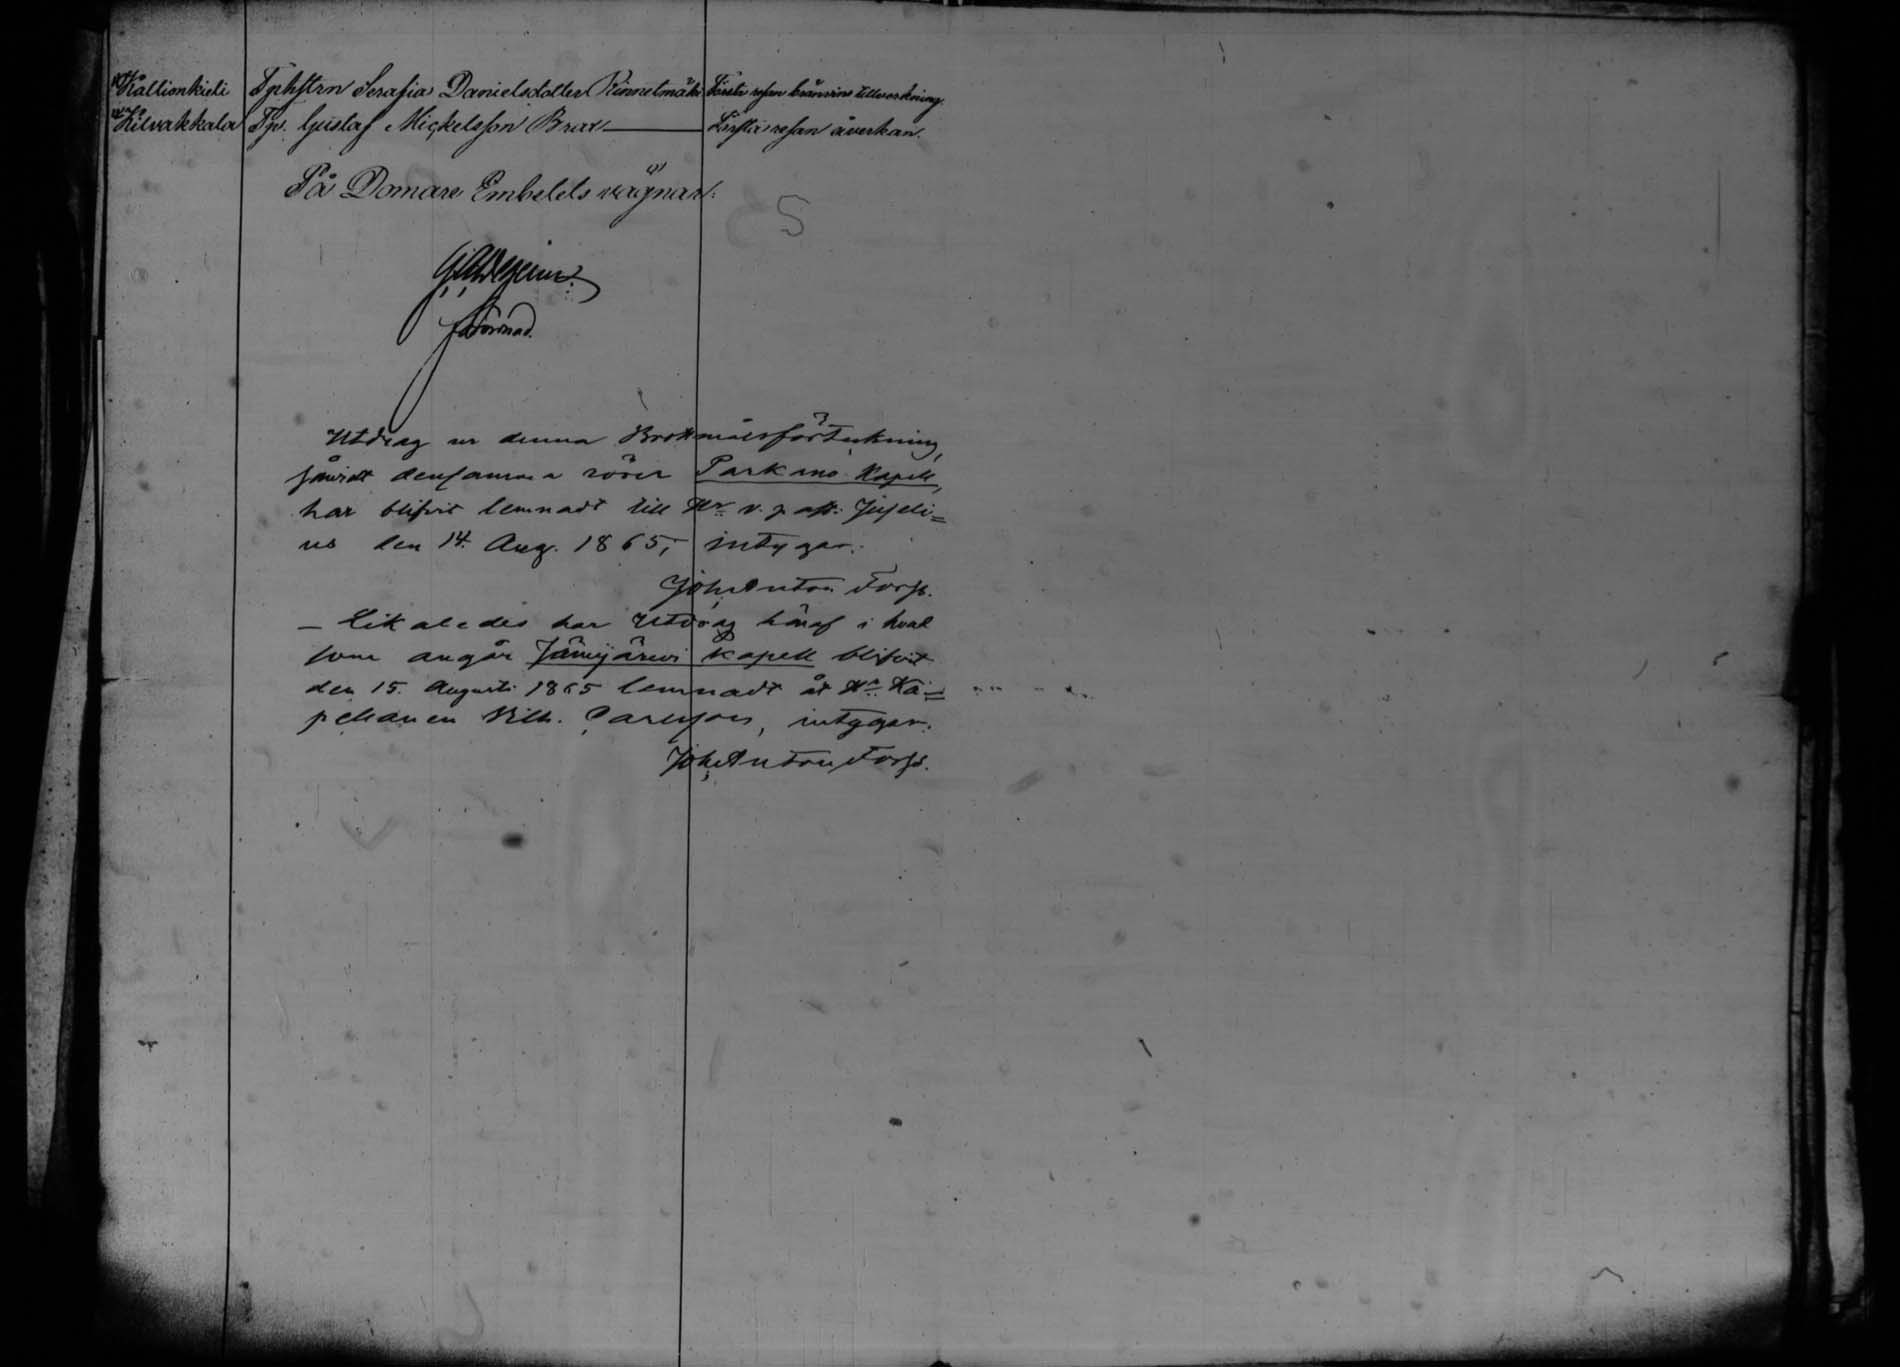 Kallionkieli Tphstrn Serafia Danielsdotter Rinnetmäki Första resan bränvins tillverkning.
Kilvakkala Tp. Gustaf Mickelsson Brax Första resan åverkan.
På Domare Embetets vägnar:
Utdrag ur denna Brottmålsförteckning,
såvidt densamma rörer Parkano Kapell,
har blifvit lemnadt till Hr v. past.
us den 14. Aug. 1865, intygar.
Joh Anton Forss.
— Likaledes har Utdrag häraf i hvad
som angår Jämijärvi Kapell blifvit
den 15. Augusti 1865 lemnadt åt Hr Ka=
pellanen Vilh. intygar.
Joh Anton Forss.